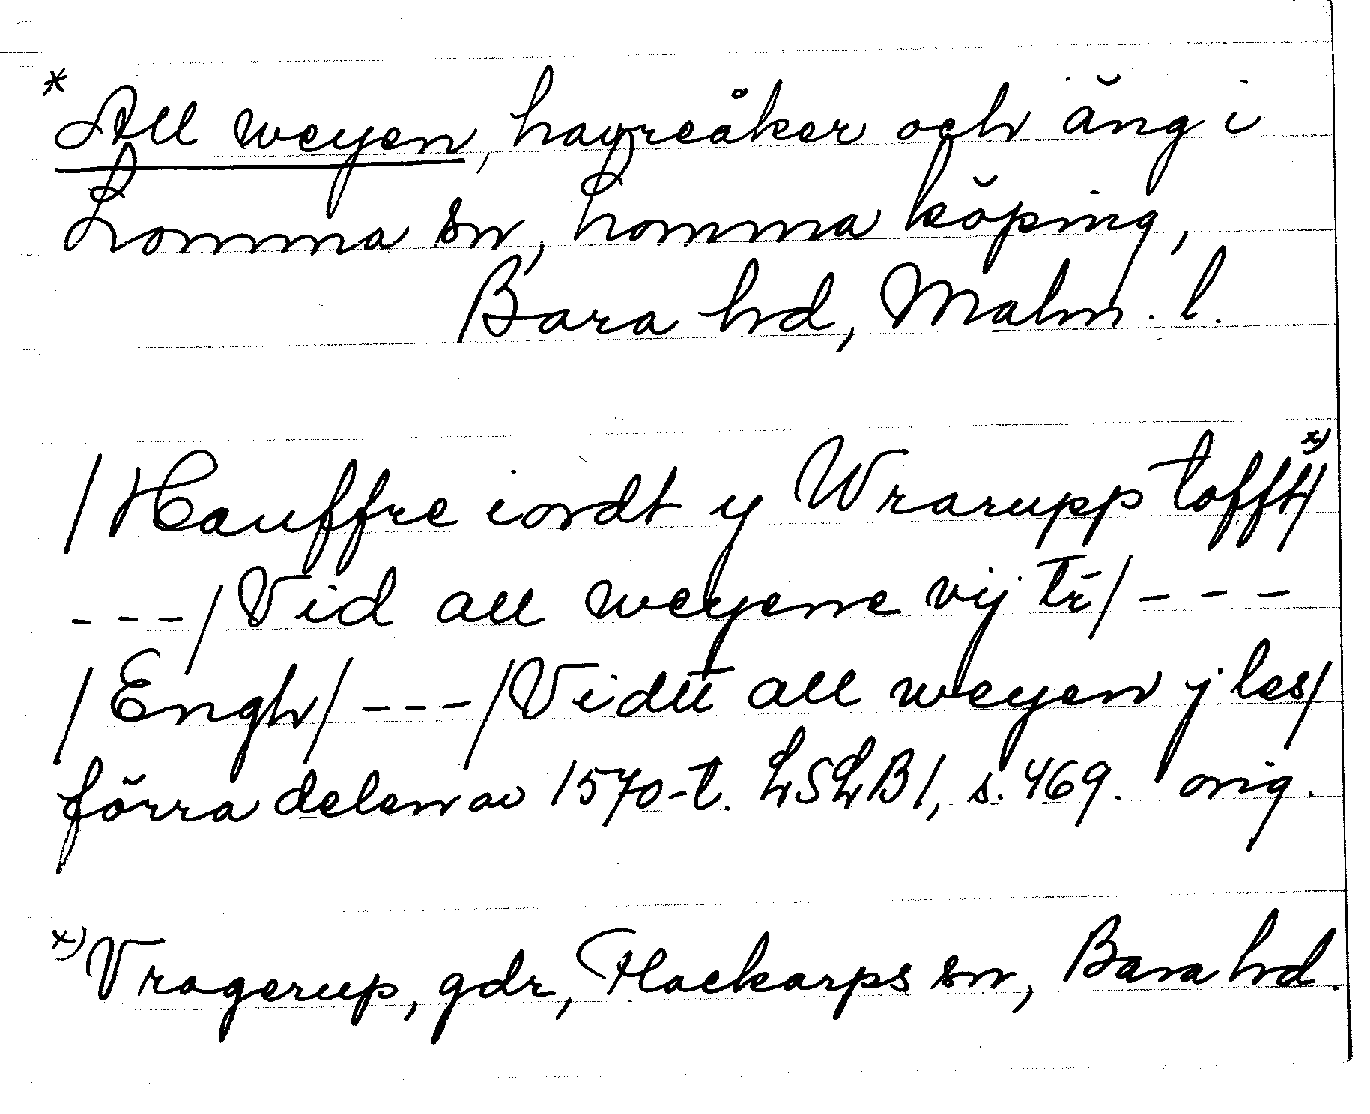 * All weyen, havreåker och äng i
Lomma sn, Lomma köping,
Bara hd, Malm. l.
/Hauffre iordt y Wrarupp tofft/ x)
---/Vid all weyene vij tr̄/---
/Engh/---/Vidtt all weyen j les/
förra delen av 1570-t. LSLB1, s. 469. orig.
x) Vragerup, gdr, Flackarps sn, Bara hd.